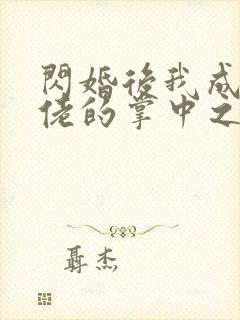 閃婚後我成
佬的掌中之
聶杰